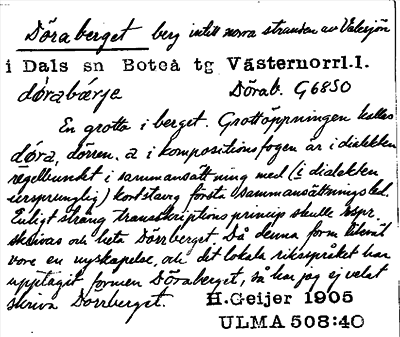 Döraberget berg intill norra stranden av Valasjön
i Dals sn Boteå tg Västernorrl.l.
dǿrabærje Dörab. G6850
En grotta i berget. Grottöppningen kallas
dǿra, dörren. a i kompositionsfogen är i dialekten
regelbundet i sammansättning med (i dialekten
ursprunglig) kortstavig första sammansättningsled.
Enligt sträng transskriptionsprincip skulle
skrivas och heta Dörrberget. Då denna form
vore en nyskapelse, och det lokala riksspråket har
upptagit formen Döraberget, så har jag ej velat
skriva Dörrberget. H.Geijer 1905
ULMA 508:40